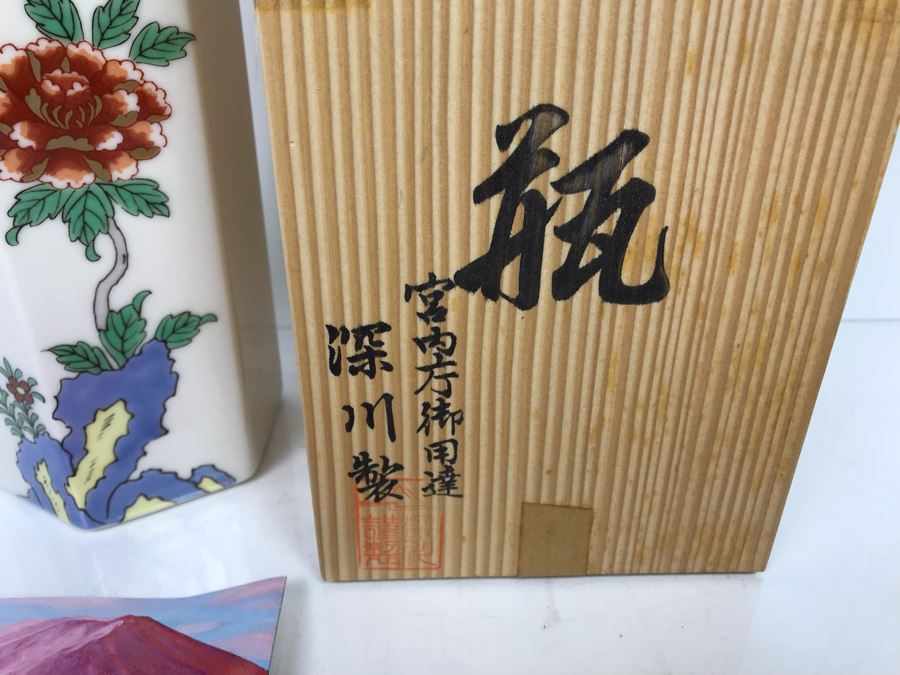 瓶
宮内庁御用達
深川製
謹製